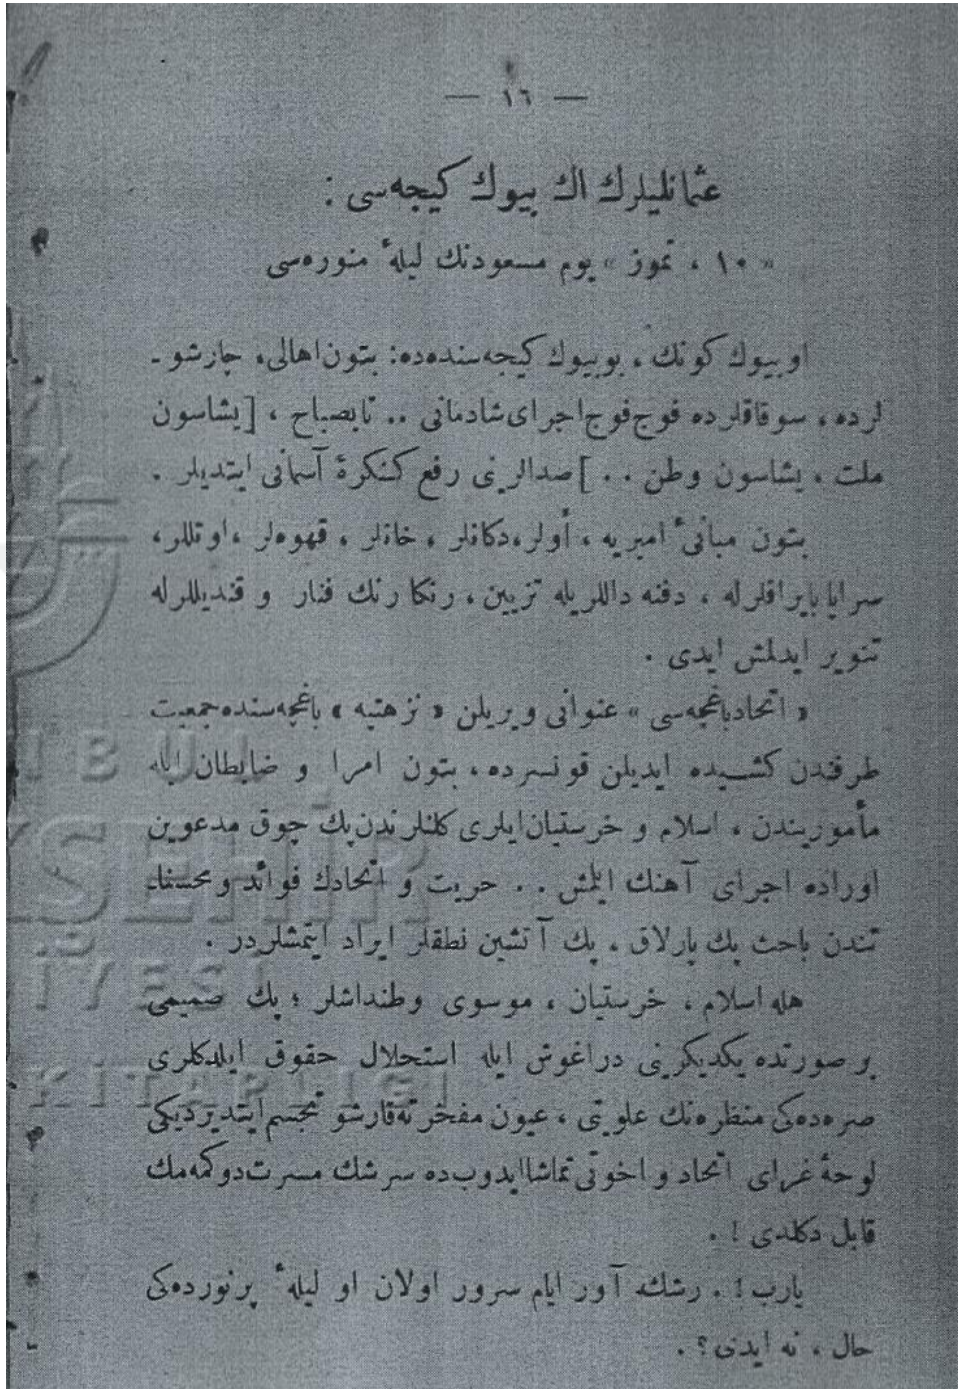 — ١٦ —
عثمانليلرك اك بيوك كيجه‌سی :
« ١٠ ، تموز » يوم مسعودنك ليلهٔ منوره‌سی
او بيوك كونك ، بو بيوك كيجه‌سنده‌ده : بتون اهالی ، چارشو ـ
لرده ، سوقاقلرده فوج فوج اجرای شادمانی .. تا بصباح ، [ يشاسون
ملت ، يشاسون وطن . . ] صدالرينی رفع كنكرهٔ آسمانی ايتديلر .
بتون مبانیٔ اميريه ، أولر ، دكانلر ، خانلر ، قهوه‌لر ، اوتللر ،
سراپا بايراقلرله ، دفنه داللريله تزيين ، رنكا رنك فنار و قنديللرله
تنوير ايدلمش ايدی .
« اتحاد باغچه‌سی » عنوانی ويريلن « نزهتيه » باغچه‌سنده جمعيت
طرفندن كشيده ايديلن قونسرده ، بتون امرا و ضابطان ايله
مأموريندن ، اسلام و خرستيان ايلری كلنلرندن پك چوق مدعوين
اوراده اجرای آهنك ايلمش . . حريت و اتحادك فوائد و محسنا ـ
تندن باحث پك پارلاق ، پك آتشين نطقلر ايراد ايتمشلردر .
هله اسلام ، خرستيان ، موسوی وطنداشلر ؛ پك صميمی
بر صورتده يكديكرينی دراغوش ايله استحلال حقوق ايلدكلری
صره‌ده‌كی منظره‌نك علويتی ، عيون مفخرته قارشو تجسم ايتديرديكی
لوحهٔ غرای اتحاد و اخوتی تماشا ايدوب‌ده سرشك مسرت دوكمه‌مك
قابل دكلدی ! .
يارب ! . رشك آور ايام سرور اولان او ليلهٔ پرنورده‌كی
حال ، نه ايدی ؟ .
İYESİ
KİTAPLIĞI